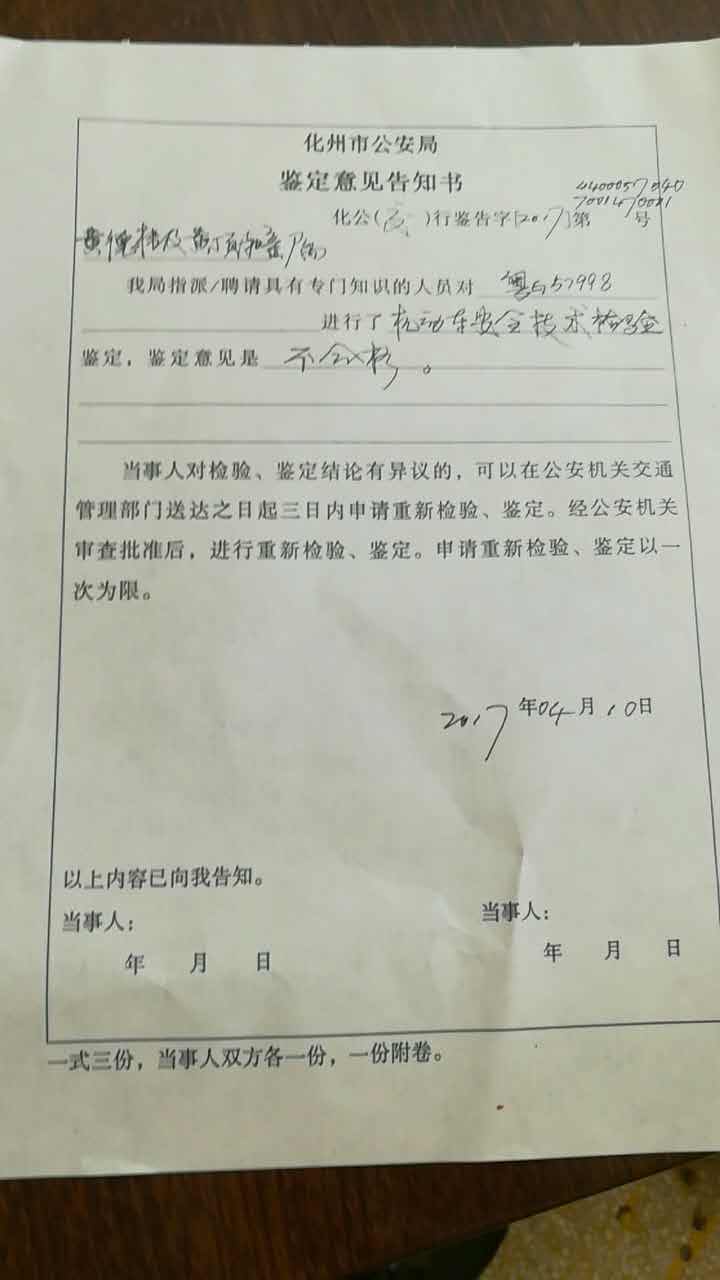 化州市公安局
鉴定意见告知书
4400057040
化公( )行鉴告字[2017]第7001470001号
我局指派/聘请具有专门知识的人员对 57998
进行了机动车安全技术检验
鉴定，鉴定意见是 不合格。
当事人对检验、鉴定结论有异议的，可以在公安机关交通
管理部门送达之日起三日内申请重新检验、鉴定。经公安机关
审查批准后，进行重新检验、鉴定。申请重新检验、鉴定以一
次为限。
2017年04月10日
以上内容已向我告知。
当事人： 当事人：
年 月 日 年 月 日
一式三份，当事人双方各一份，一份附卷。